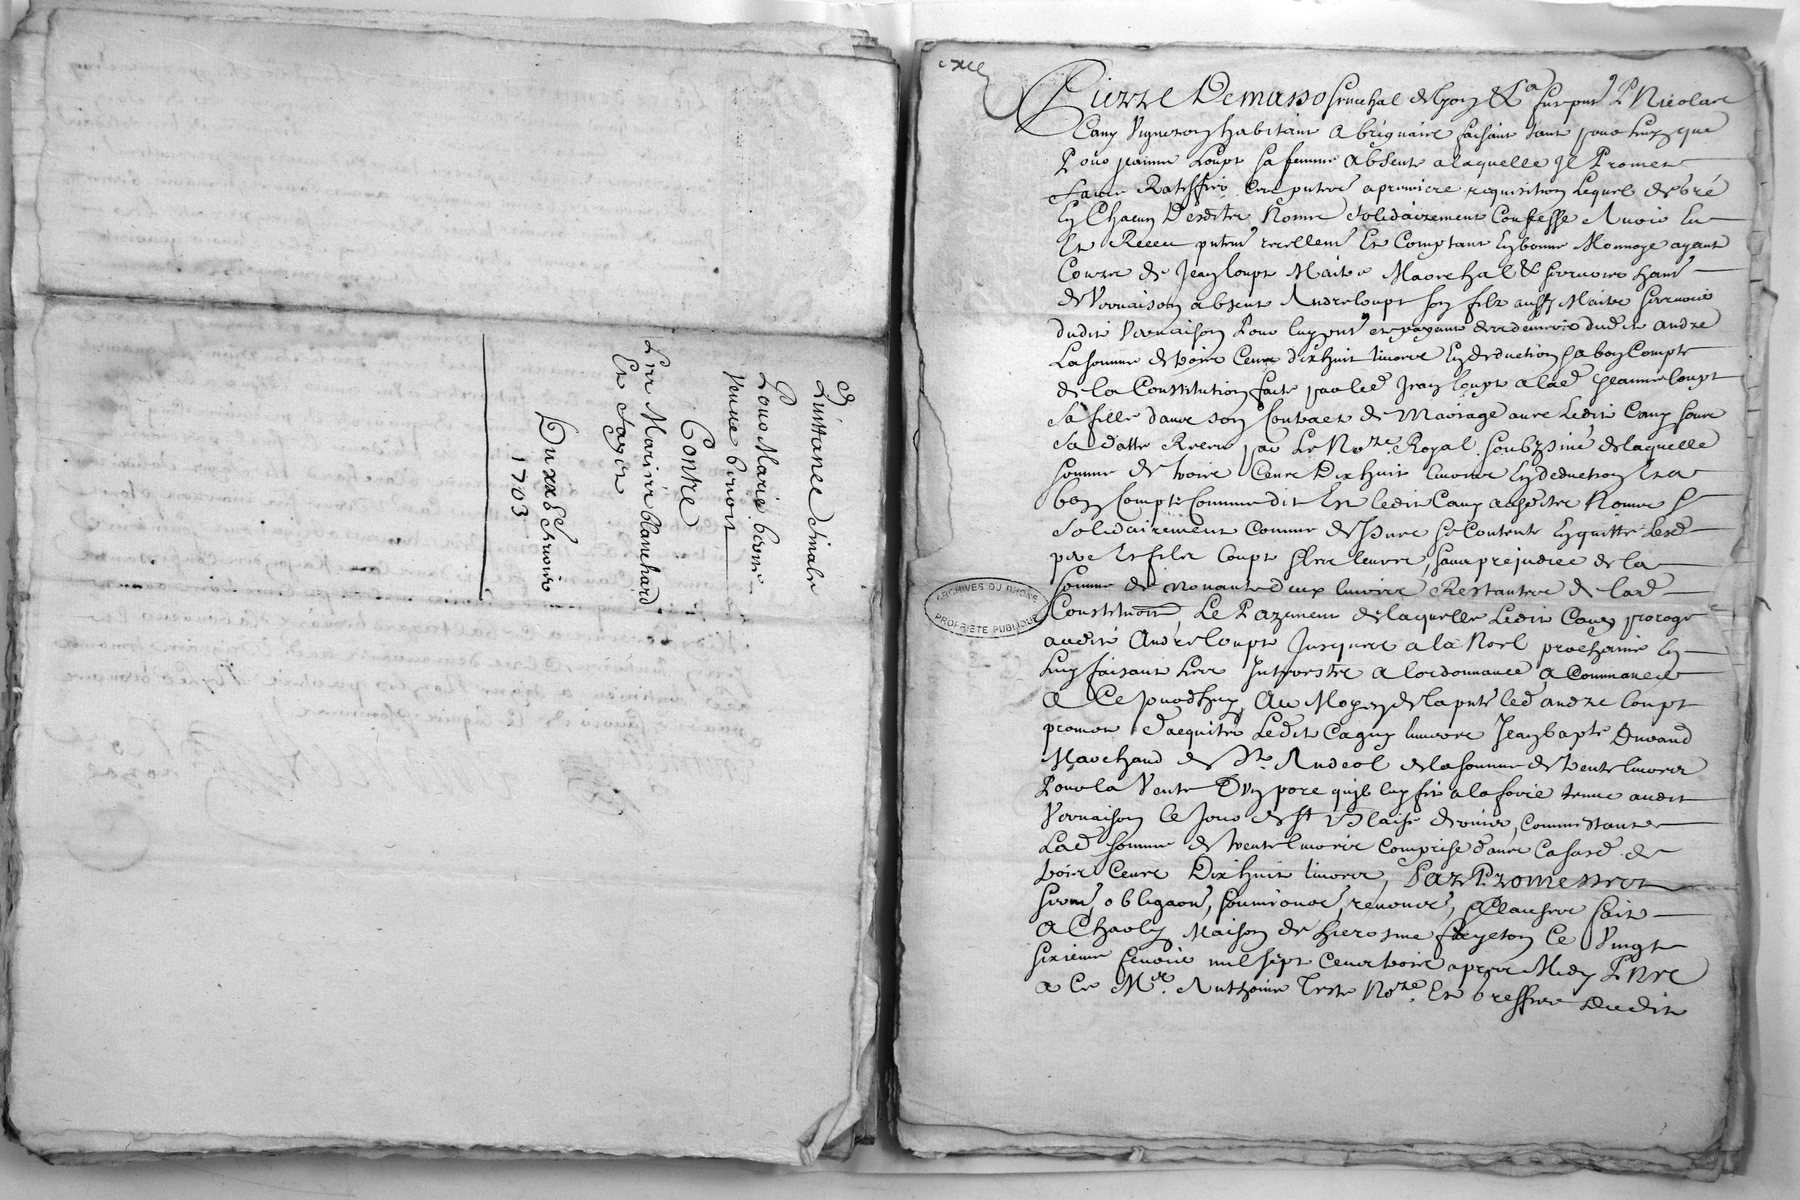 Quittance finale
Pour Marie
veuve benoit
Contre
Les Mariés blanchard
Et Fayet
Du xxe fevrier
1703
Pierre Demasso senechal de lyon & Ca furent pnt Nicolas
Cany Vigneron habitant a brignais faisant tant pour luy que
Pour jeanne Loupt sa femme absente a laquelle Il Promet
faire Rattiffier a premiere requisition Lequel de gré
En Chacun Desdits Noms solidairement Confesse Avoir Eu
Et Receu reellemt Et Comptant En bonne Monnoye ayant
Cours de Jean loupt Maitre Marechal & serrurier
de Vernaison absent André loupt son filz aussy Maitre serrurier
dudit Vernaison Pour luy pnt et payant des deniers dudit andré
La somme de trois Cens dix huit livres En deduction & a bon Compte
de la Constitution faite par led Jean loupt a lad Jeanne loupt
sa fille dans son Contract de Mariage avec Ledit Cany sous
sa datte Receu par Le Nore Royal soubzsiné de laquelle
somme de trois Cens Dix huit livres En deduction Et a
bon Compte Comme dit Est ledit Cany ausdits Noms &
solidairement Comme dessus se Contente En quitte Lesd
pere Et filz loupt & les leurs, sans prejudice de la
somme de Nonante deux livres Restantes de lad
Constituon, Le Payement de laquelle Ledit Cany proroge
audit André loupt Jusques a la Noel prochaine En
Luy faisant Les Interestz a lordonnance a Commancer
a Ce jourdhuy, Au Moyen de la pnte led andré loupt
promet d'acquiter Ledit Cany envers Jean bapte Durand
Marchand de St Andeol de la somme de trente livres
Pour la Vente D'un porc qu'il luy fit a la foire tenue audit
Vernaison le Jour de St Blaise dernier,
Lad somme de trente livres Comprise dans
trois Cens Dix huit livres, Par Promesses
serm, obligaons, soumions, renons, & Clauses fait
a Charly Maison de hierosme fayeton Ce Vingt
sixieme fevrier mil sept Cens trois apres Midy
a Ce Mr Anthoine Teste Nore Et Greffier Dudit
ARCHIVES DU RHONE
PROPRIETE PUBLIQUE